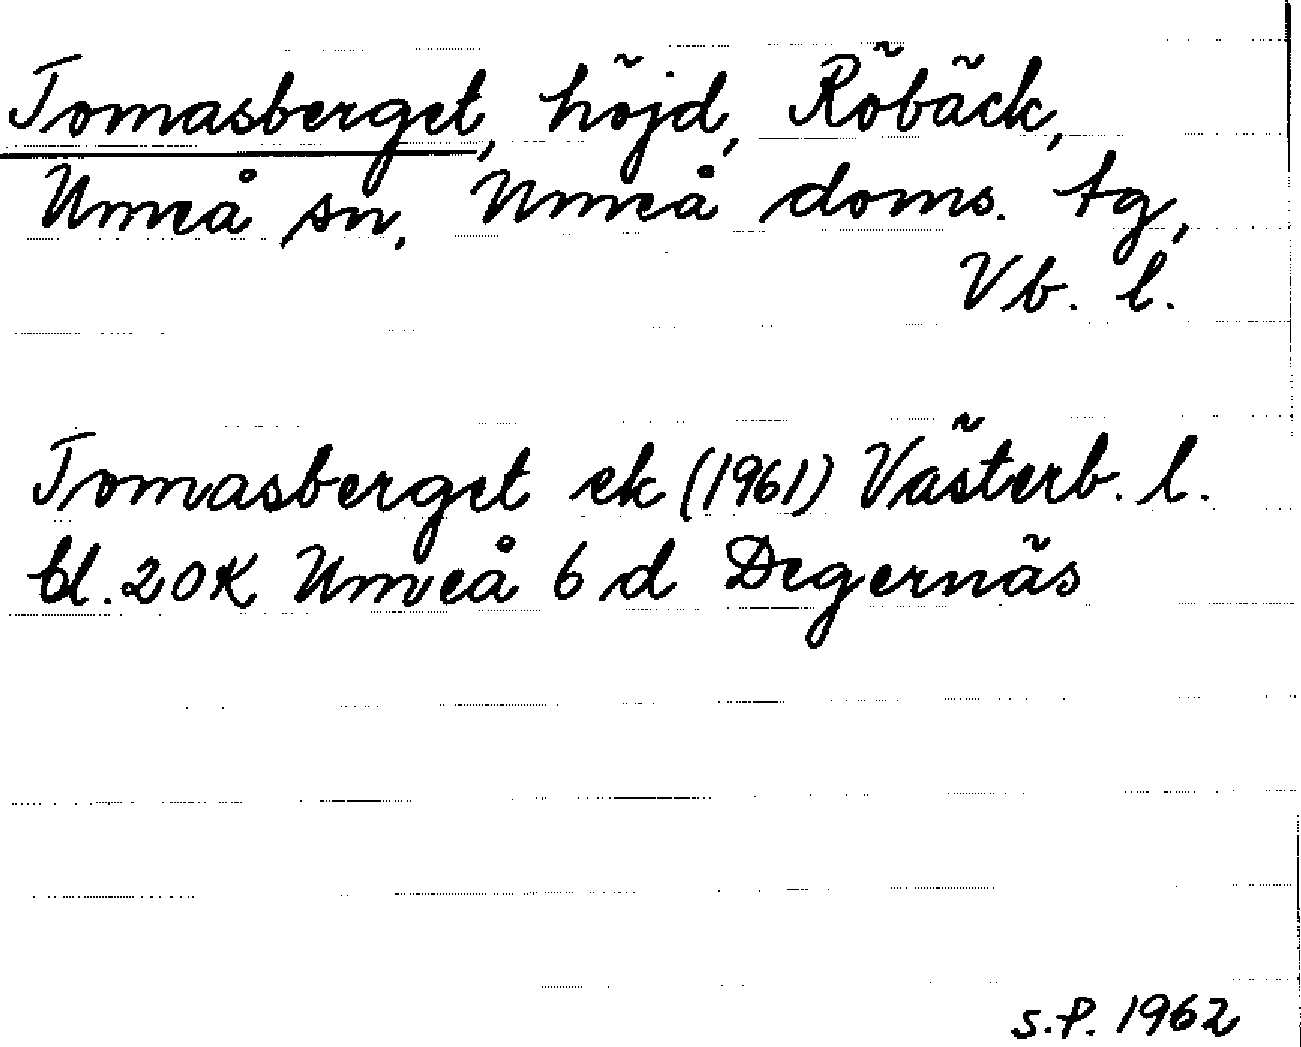 Tomasberget, höjd, Röbäck,
Umeå sn, Umeå doms. tg,
Vb. l.
Tomasberget ek (1961) Västerb. l.
bl. 20K Umeå 6 d Degernäs
S.P. 1962